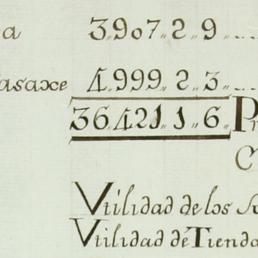 a 3,,907,,2,,9,,...
asaxe 4,,999,,2,,3,,...
36,,421,,1,,6,,
Vtilidad de los
Vtilidad de Tienda